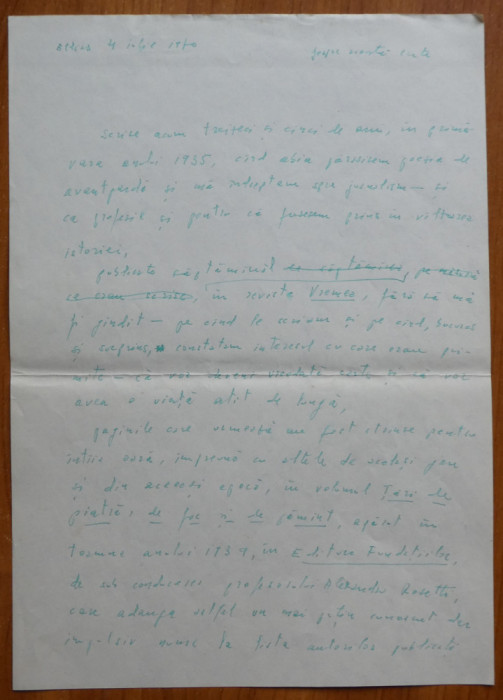 4 iulie 1970
scrise acum treizeci și cinci de ani, în primă
vara anului 1935, cînd abia părăsisem poezia de
avantgardă și mă îndreptam spre jurnalism – și
ca profesie și pentru că fusesem prins în vîltoarea
istoriei,
publicate săptămînal, în revista Vremea, fără să mă
fi gîndit – pe cînd le scriam și pe cînd, bucuros
și surprins, constatam interesul cu care erau pri-
mite – că vor și că vor
avea o viață atît de lungă,
paginile care urmează au fost strînse pentru
întîia oară, împreună cu altele de același gen
și din aceeași epocă, în volumul Țară de
piatră, de foc și de pămînt, apărut în
toamna anului 1937, în Editura Fundațiilor,
de sub conducerea profesorului Alexandru Rosetti,
care adăuga astfel un mai puțin cunoscut
nume la lista autorilor publicați